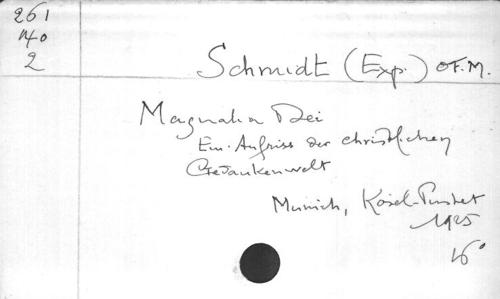 261
140
2
Schmidt (Exp.) O.F.M.
Magnalia Dei
Ein Aufriss der christlichen
Gedankenwelt
Munich, Kösel-Pustet
1925
16°